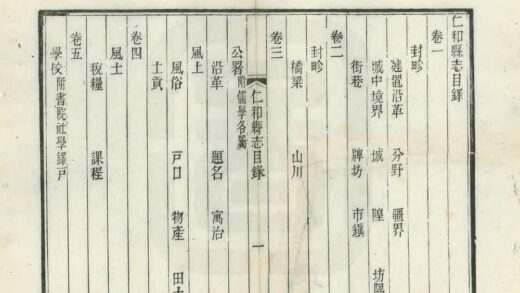 仁和縣志目錄
卷一
封畛
建置沿革 分野 疆界
城中境界 城 隍 坊隅
街巷 牌坊 市鎮
卷二
封畛
橋梁 山川
卷三
仁和縣志目錄 一
公署附儒學各屬
沿革 題名 寓治
風土
風俗 戶口 物產 田土
土貢
卷四
風土
稅糧 課程
卷五
學校附書院社學鐸戶